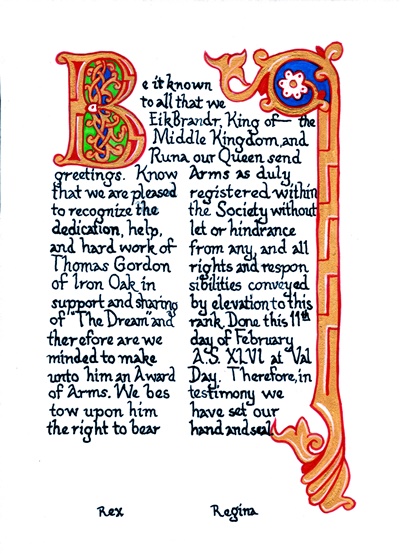 Be it known
to all that we
EikBrandr, King of — the
Middle Kingdom, and
Runa our Queen send
greetings. Know
that we are pleased
to recognize the
dedication, help,
and hard work of
Thomas Gordon
of Iron Oak in
support and sharing
of "The Dream" and
therefore are we
minded to make
unto him an Award
of Arms. We bes
tow upon him
the right to bear
Arms as duly
registered within
the Society without
let or hindrance
from any, and all
rights and respon
sibilities conveyed
by elevation to this
rank. Done this 11th
day of February
A.S. XLVI at Val
Day. Therefore, in
testimony we
have set our
hand and seal.
Rex
Regina